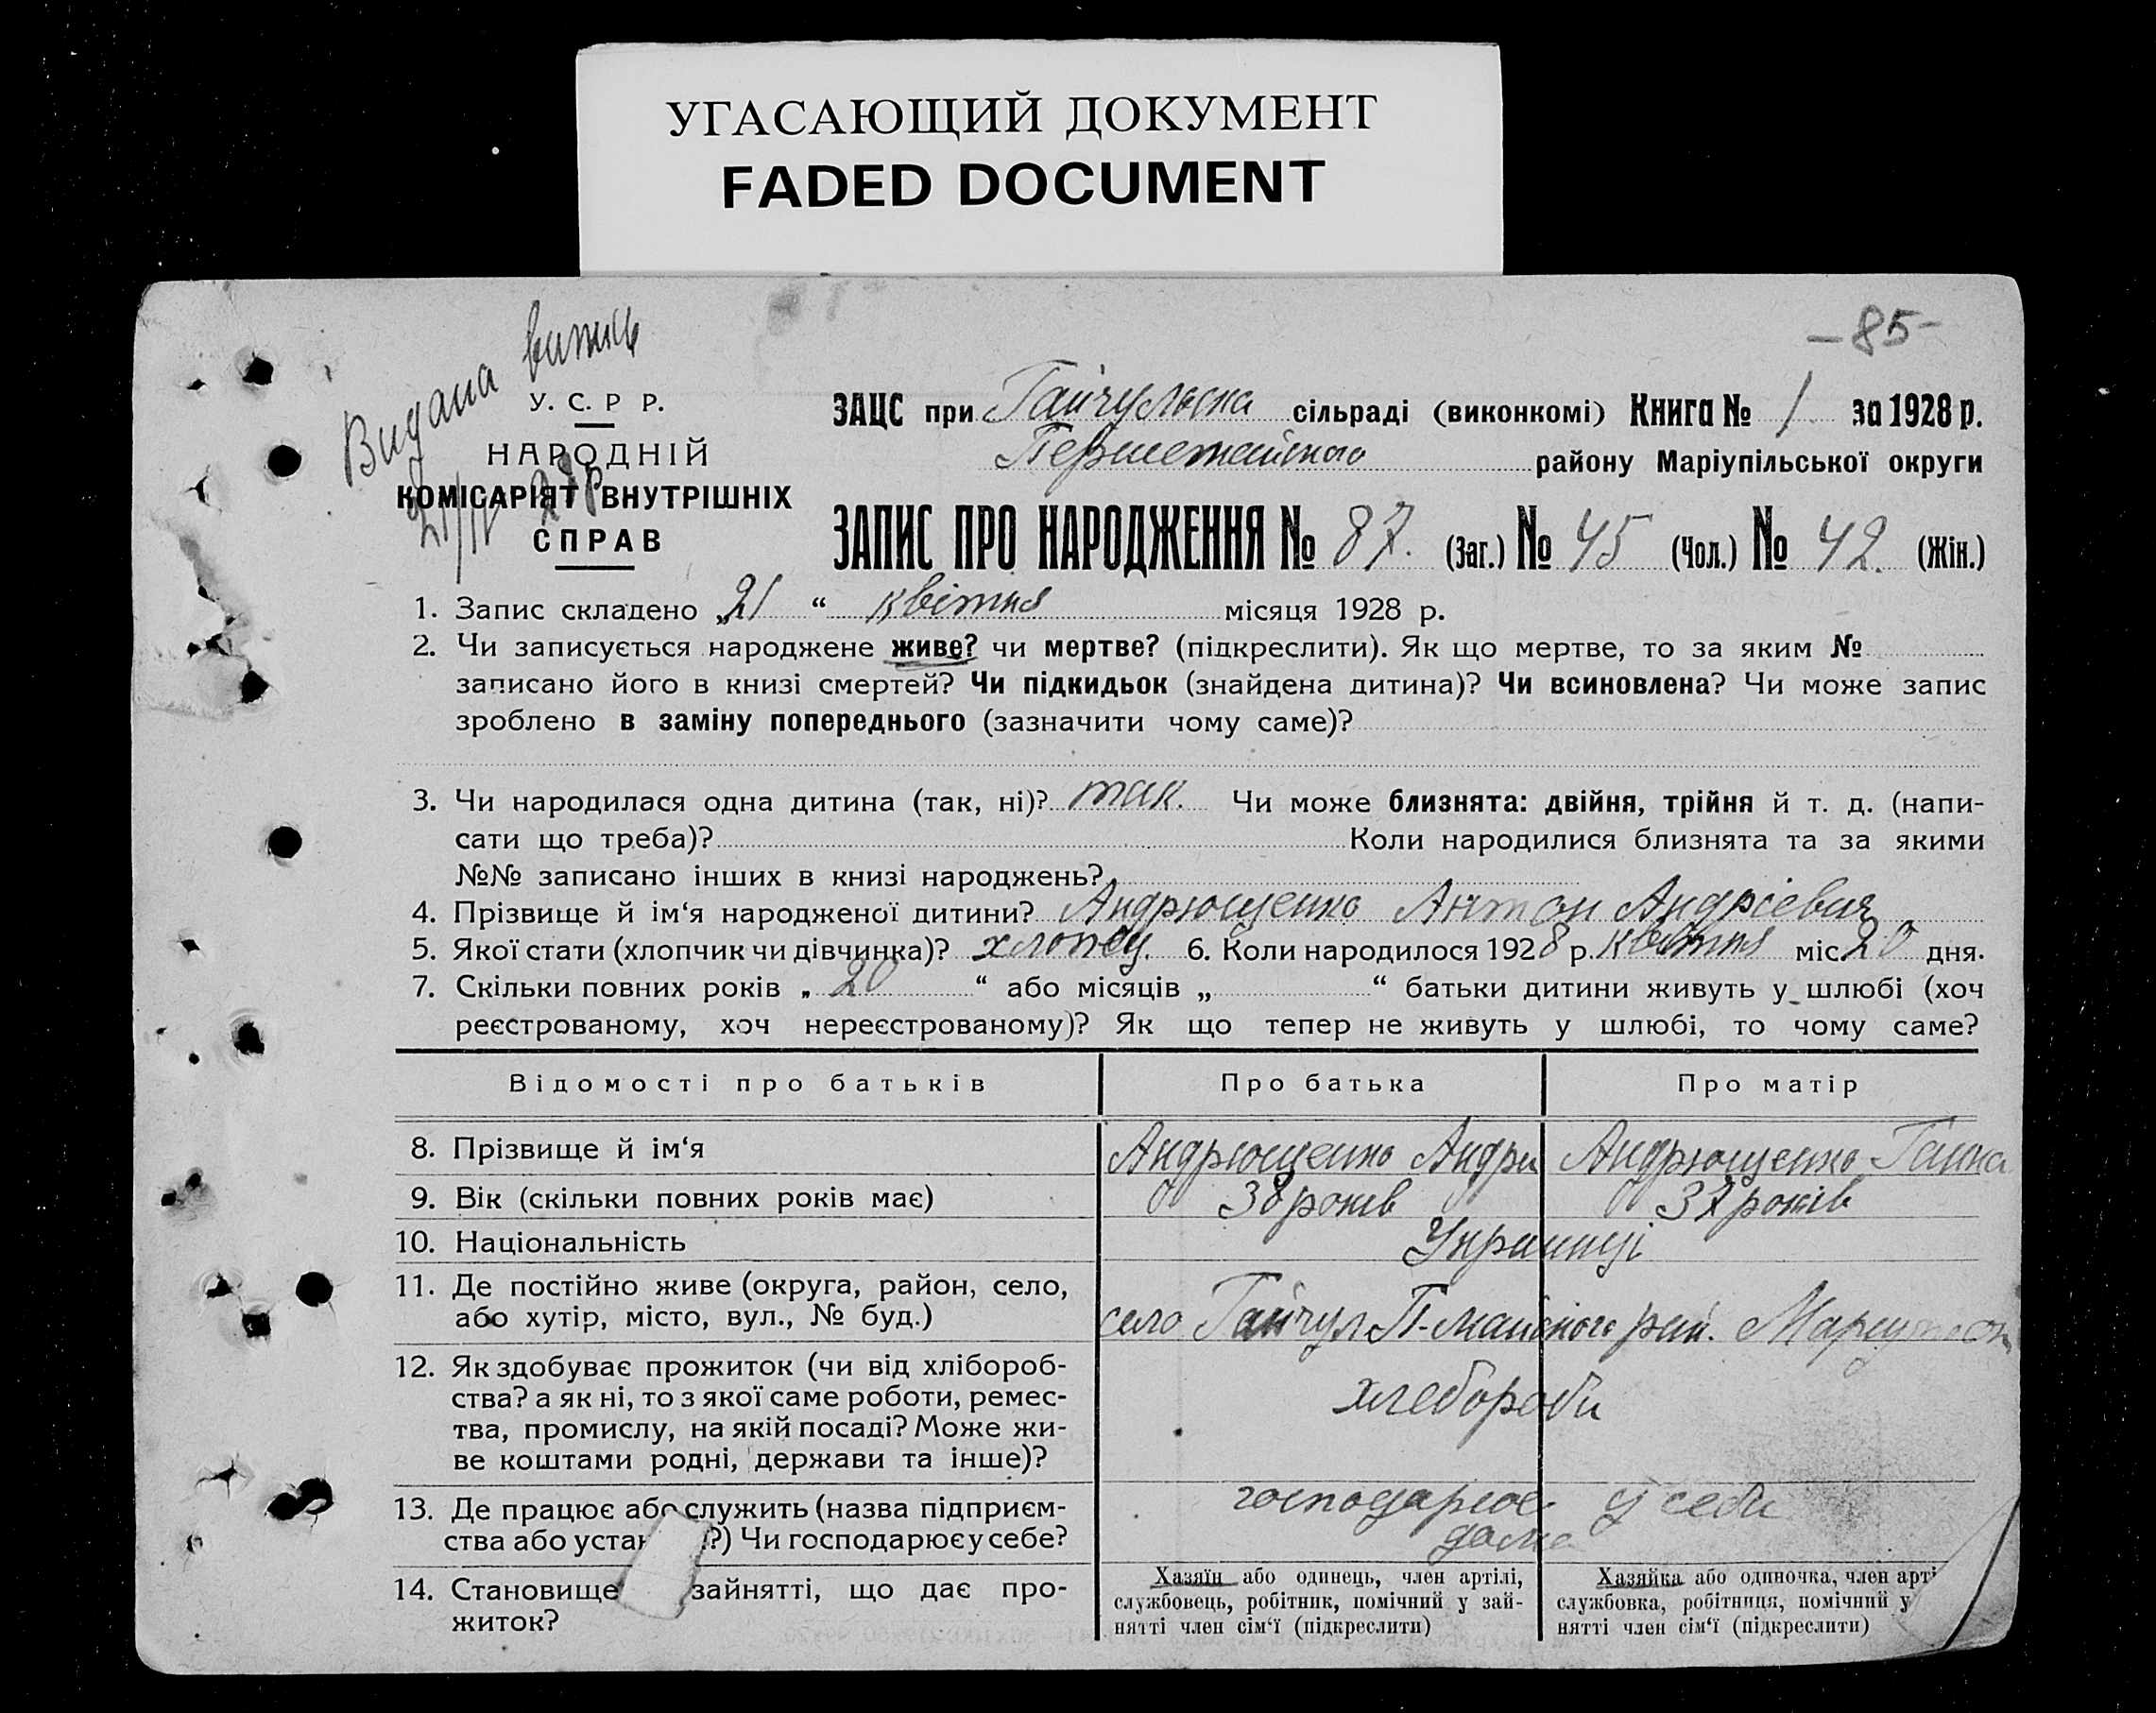 УГАСАЮЩИЙ ДОКУМЕНТ
FADED DOCUMENT
-85-
Видана витись
21/IV 28р
У. С. Р Р.
НАРОДНІЙ
КОМІСАРІЯТ ВНУТРІШНІХ
СПРАВ
ЗАЦС при Гайчульська сільраді (виконкомі) Книга № 1 за 1928 р.
Першетайського району Маріупільської округи
ЗАПИС ПРО НАРОДЖЕННЯ № 87. (Заг.) № 45 (Чол.) № 42. (Жін.)
1. Запис складено „21“ квітня місяця 1928 р.
2. Чи записується народжене живе? чи мертве? (підкреслити). Як що мертве, то за яким №
записано його в книзі смертей? Чи підкидьок (знайдена дитина)? Чи всиновлена? Чи може запис
зроблено в заміну попереднього (зазначити чому саме)?
3. Чи народилася одна дитина (так, ні)? так. Чи може близнята: двійня, трійня й т. д. (напи-
сати що треба)? Коли народилися близнята та за якими
№№ записано інших в книзі народжень?
4. Прізвище й ім‘я народженої дитини? Андрющенко Антон Андрієвич
5. Якої стати (хлопчик чи дівчинка)? хлопец. 6. Коли народилося 1928 р. квітня міс. 20 дня.
7. Скільки повних років „20“ або місяців „ “ батьки дитини живуть у шлюбі (хоч
реєстрованому, хоч нереєстрованому)? Як що тепер не живуть у шлюбі, то чому саме?
Відомості про батьків Про батька Про матір
8. Прізвище й ім‘я Андрющенко Андри Андрющенко Ганна
9. Вік (скільки повних років має) 38 років 37 років
10. Національність Украинці
11. Де постійно живе (округа, район, село,
або хутір, місто, вул., № буд.) село Гайчул П-майского рай.
12. Як здобуває прожиток (чи від хлібороб-
ства? а як ні, то з якої саме роботи, ремес-
тва, промислу, на якій посаді? Може жи-
ве коштами родні, держави та інше)?
хлебороби
13. Де працює або служить (назва підприєм-
ства або устан ?) Чи господарює у себе?
господарює у себи
дома
14. Становище зайнятті, що дає про-
житок?
Хазяїн або одинець, член артілі,
службовець, робітник, помічний у зай-
нятті член сім‘ї (підкреслити)
Хазяйка або одиночка, член арті
службовка, робітниця, помічний у
нятті член сім‘ї (підкреслити)